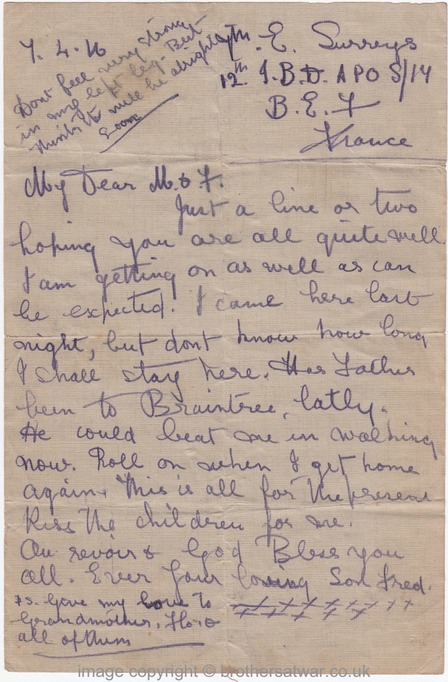 7. 4. 16
Dont feel very strong
in my left leg. But
think it will be alright
soon
7th. E. Surreys
12th I.B.D. APO S/14
B. E. F
France
My Dear M. & F.
Just a line or two
hoping you are all quite well
I am getting on as well as can
be expected. I came here last
night, but dont know how long
I shall stay here. Has Father
been to Braintree, latly.
He could beat me in walking
now. Roll on when I get home
again. This is all for the present
Kiss the children for me.
Au revoir & God Bless you
all. Ever Your loving Son Fred.
P.S. Give my love to
Grandmother, Flo &
all of them
image copyright © brothersatwar.co.uk